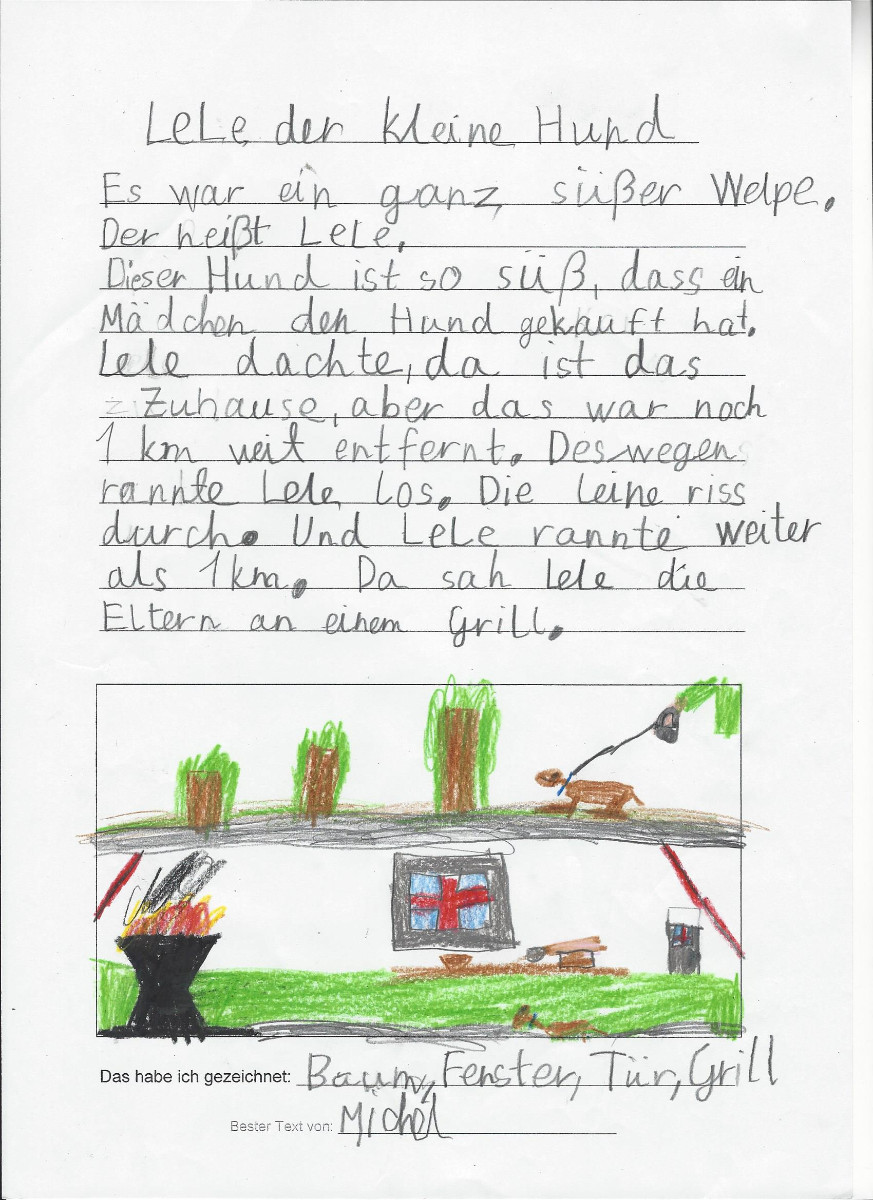 Lele der kleine Hund
Es war ein ganz süßer Welpe.
Der heißt Lele.
Dieser Hund ist so süß, dass ein
Mädchen den Hund gekauft hat.
Lele dachte, da ist das
Zuhause, aber das war noch
1 km weit entfernt. Deswegen
rannte Lele los. Die Leine riss
durch. Und Lele rannte weiter
als 1 km. Da sah Lele die
Eltern an einem Grill.
Das habe ich gezeichnet: Baum, Fenster, Tür, Grill
Bester Text von: Michel